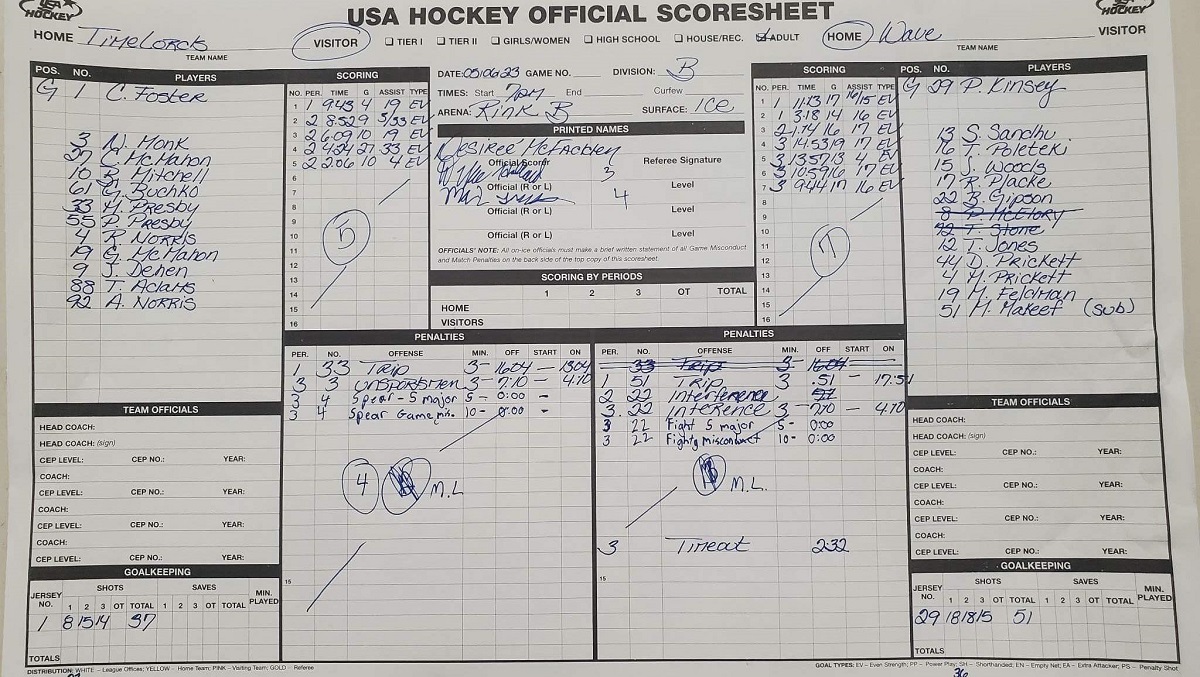 USA HOCKEY
USA HOCKEY OFFICIAL SCORESHEET
HOCKEY
HOME Timelords VISITOR
TEAM NAME
☐ TIER I ☐ TIER II ☐ GIRLS/WOMEN ☐ HIGH SCHOOL ☐ HOUSE/REC. ☑ ADULT
HOME Wave VISITOR
TEAM NAME
POS. NO. PLAYERS
G 1 C. Foster
3 N. Monk
27 C. McMahon
10 B. Mitchell
61 C. Buchko
33 M. Presby
55 P. Presby
4 R. Norris
19 G. McMahon
9 J. Dehen
88 T. Adams
92 A. Norris
SCORING
NO. PER. TIME G ASSIST TYPE
1 1 943 4 19 EV
2 2 8529 5/33 EV
3 2 609 10 19 EV
4 2 424 27 33 EV
5 2 206 10 4 EV
6
7
8
9
10
11
12
13
14
15
16
5
DATE: 05/06/23 GAME NO. DIVISION: B
TIMES: Start 7pm End Curfew
ARENA: Rink B SURFACE: ICE
PRINTED NAMES
Desiree McFadden
Official Scorer Referee Signature
3
Official (R or L) Level
4
Official (R or L) Level
Official (R or L) Level
OFFICIALS' NOTE: All on-ice officials must make a brief written statement of all Game Misconduct
and Match Penalties on the back side of the top copy of this scoresheet.
SCORING BY PERIODS
1 2 3 OT TOTAL
HOME
VISITORS
SCORING
NO. PER. TIME G ASSIST TYPE
1 1 1113 17 16/15 EV
2 1 318 14 16 EV
3 2 1.14 16 17 EV
4 3 14.53 19 17 EV
5 3 1357 13 4 EV
6 3 1059 16 17 EV
7 3 944 17 16 EV
8
9
10
11
12
13
14
15
16
7
POS. NO. PLAYERS
G 29 P. Kinsey
13 S. Sandhu
16 T. Poleteki
15 J. Woods
17 R. Placke
22 B. Gipson
8 P. McElory
72 T. Stone
12 T. Jones
44 D. Prickett
4 M. Prickett
19 M. Feldman
51 M. Makeef (sub)
PENALTIES
PER. NO. OFFENSE MIN. OFF START ON
1 33 Trip 3- 1604 — 1304
3 3 Unsportsmen 3- 7:10 — 4:10
3 4 Spear - 5 major 5 - 0:00 -
3 4 Spear Game mis. 10- 0:00 -
4 M.L
15
PENALTIES
PER. NO. OFFENSE MIN. OFF START ON
33 Trip 3- 1604
1 51 Trip 3 .51 - 17:51
2 22 Interference 51
3. 22 Interence 3- 710 — 4:10
3 22 Fight 5 major 5- 0:00
3 22 Fightg misconduct 10- 0:00
M.L.
3 Timeout 2:32
15
TEAM OFFICIALS
HEAD COACH:
HEAD COACH: (sign)
CEP LEVEL: CEP NO.: YEAR:
COACH:
CEP LEVEL: CEP NO.: YEAR:
COACH:
CEP LEVEL: CEP NO.: YEAR:
COACH:
CEP LEVEL: CEP NO.: YEAR:
GOALKEEPING
JERSEY NO. SHOTS SAVES MIN. PLAYED
1 2 3 OT TOTAL 1 2 3 OT TOTAL
1 8 15 14 37
TOTALS
TEAM OFFICIALS
HEAD COACH:
HEAD COACH: (sign)
CEP LEVEL: CEP NO.: YEAR:
COACH:
CEP LEVEL: CEP NO.: YEAR:
COACH:
CEP LEVEL: CEP NO.: YEAR:
COACH:
CEP LEVEL: CEP NO.: YEAR:
GOALKEEPING
JERSEY NO. SHOTS SAVES MIN. PLAYED
1 2 3 OT TOTAL 1 2 3 OT TOTAL
29 18 18 15 51
TOTALS
DISTRIBUTION: WHITE – League Offices; YELLOW – Home Team; PINK – Visiting Team; GOLD – Referee
GOAL TYPES: EV – Even Strength; PP – Power Play; SH – Shorthanded; EN – Empty Net; EA – Extra Attacker; PS – Penalty Shot
36